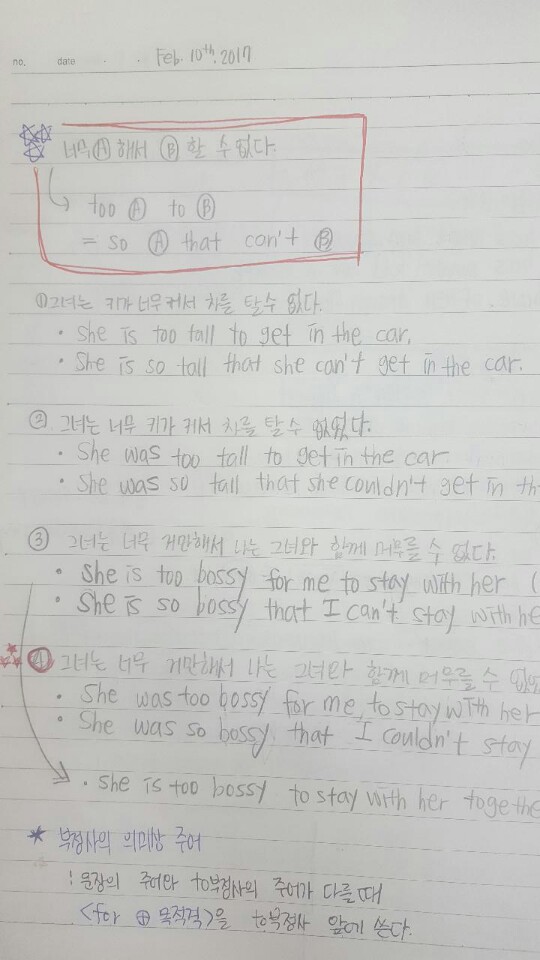 no. date . . Feb. 10th. 2017
너무 Ⓐ 해서 Ⓑ 할 수 없다.
too Ⓐ to Ⓑ
= so Ⓐ that can't Ⓑ
① 그녀는 키가 너무 커서 차를 탈 수 없다.
• She is too tall to get in the car.
• She is so tall that she can't get in the car.
② 그녀는 너무 키가 커서 차를 탈 수 없었다.
• She was too tall to get in the car
• She was so tall that she couldn't get in th
③ 그녀는 너무 거만해서 나는 그녀와 함께 머무를 수 없다.
• She is too bossy for me to stay with her (
• She is so bossy that I can't stay with he
④ 그녀는 너무 거만해서 나는 그녀와 함께 머무를 수 없었
• She was too bossy for me, to stay with her
• She was so bossy. that I couldn't stay
• she is too bossy to stay with her togethe
* 부정사의 의미상 주어
: 문장의 주어와 to부정사의 주어가 다를 때
<for ⊕ 목적격>을 to부정사 앞에 쓴다.